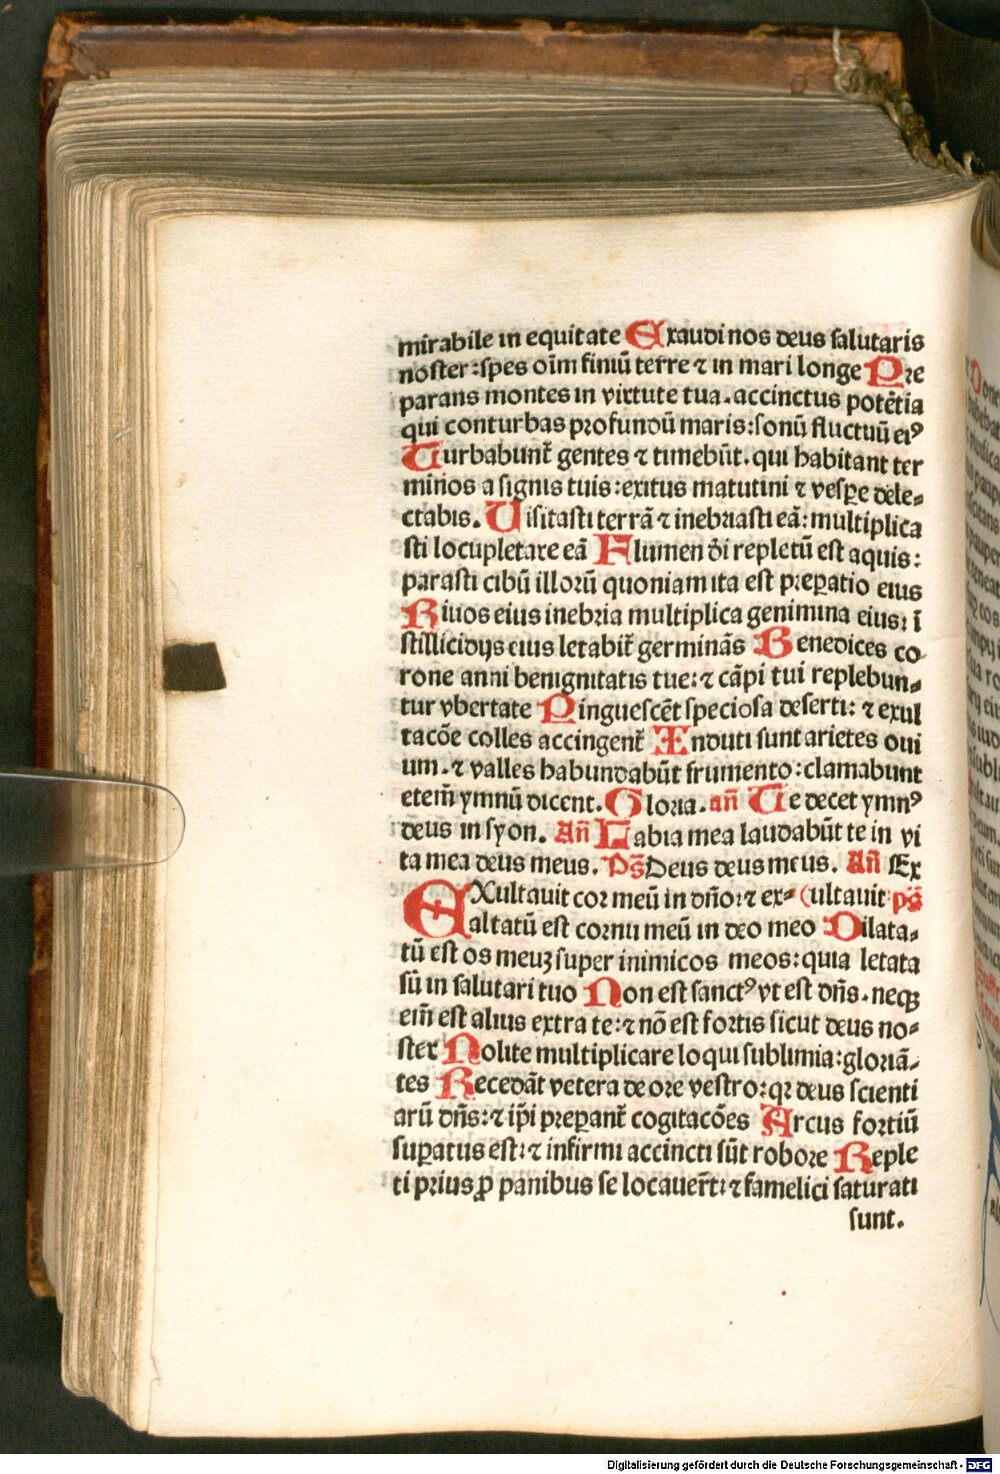 mirabile in equitate Exaudi nos deus salutaris
noster:spes oīm finiū terre ⁊ in mari longe Pre
parans montes in virtute tua.accinctus potētia
qui conturbas profundū maris:sonū fluctuū eiꝰ
Turbabunt᷑ gentes ⁊ timebūt.qui habitant ter
minos a signis tuis:exitus matutini ⁊ vesꝑe dele⸗
ctabis. Uisitasti terrā ⁊ inebriasti eā:multiplica
sti locupletare eā Flumen dī repletū est aquis:
parasti cibū illorū quoniam ita est preꝑatio eius
Riuos eius inebria multiplica genimina eius: ī
stillicidijs eius letabit᷑ germinās Benedices co
rone anni benignitatis tue:⁊ cāpi tui replebun⸗
tur vbertate Pinguescēt speciosa deserti: ⁊ exul
tacōe colles accingent᷑ Induti sunt arietes oui
um.⁊ valles habundabūt frumento:clamabunt
etem̄ ymnū dicent. Gloria. an̄ Te decet ymnꝰ
deus in syon. An̄ Labia mea laudabūt te in vi
ta mea deus meus. Ps̄ Deus deus meus. An̄ Ex
EXultauit cor meū in dn̄o:⁊ ex⸗ (ultauit ps̄
altatū est cornu meū in deo meo Dilata⸗
tū est os meuꝫ super inimicos meos:quia letata
sū in salutari tuo Non est sanctꝰ vt est dn̄s.neqꝫ
em̄ est alius extra te:⁊ nō est fortis sicut deus no⸗
ster Nolite multiplicare loqui sublimia:gloriā⸗
tes Recedāt vetera de ore vestro:qr deus scienti
arū dn̄s:⁊ ip̄i preꝑant᷑ cogitacōes Arcus fortiū
suꝑatus est:⁊ infirmi accincti sūt robore Reple
ti prius ꝓ panibus se locauer̄t:⁊ famelici saturati
sunt.
Digitalisierung gefördert durch die Deutsche Forschungsgemeinschaft - DFG